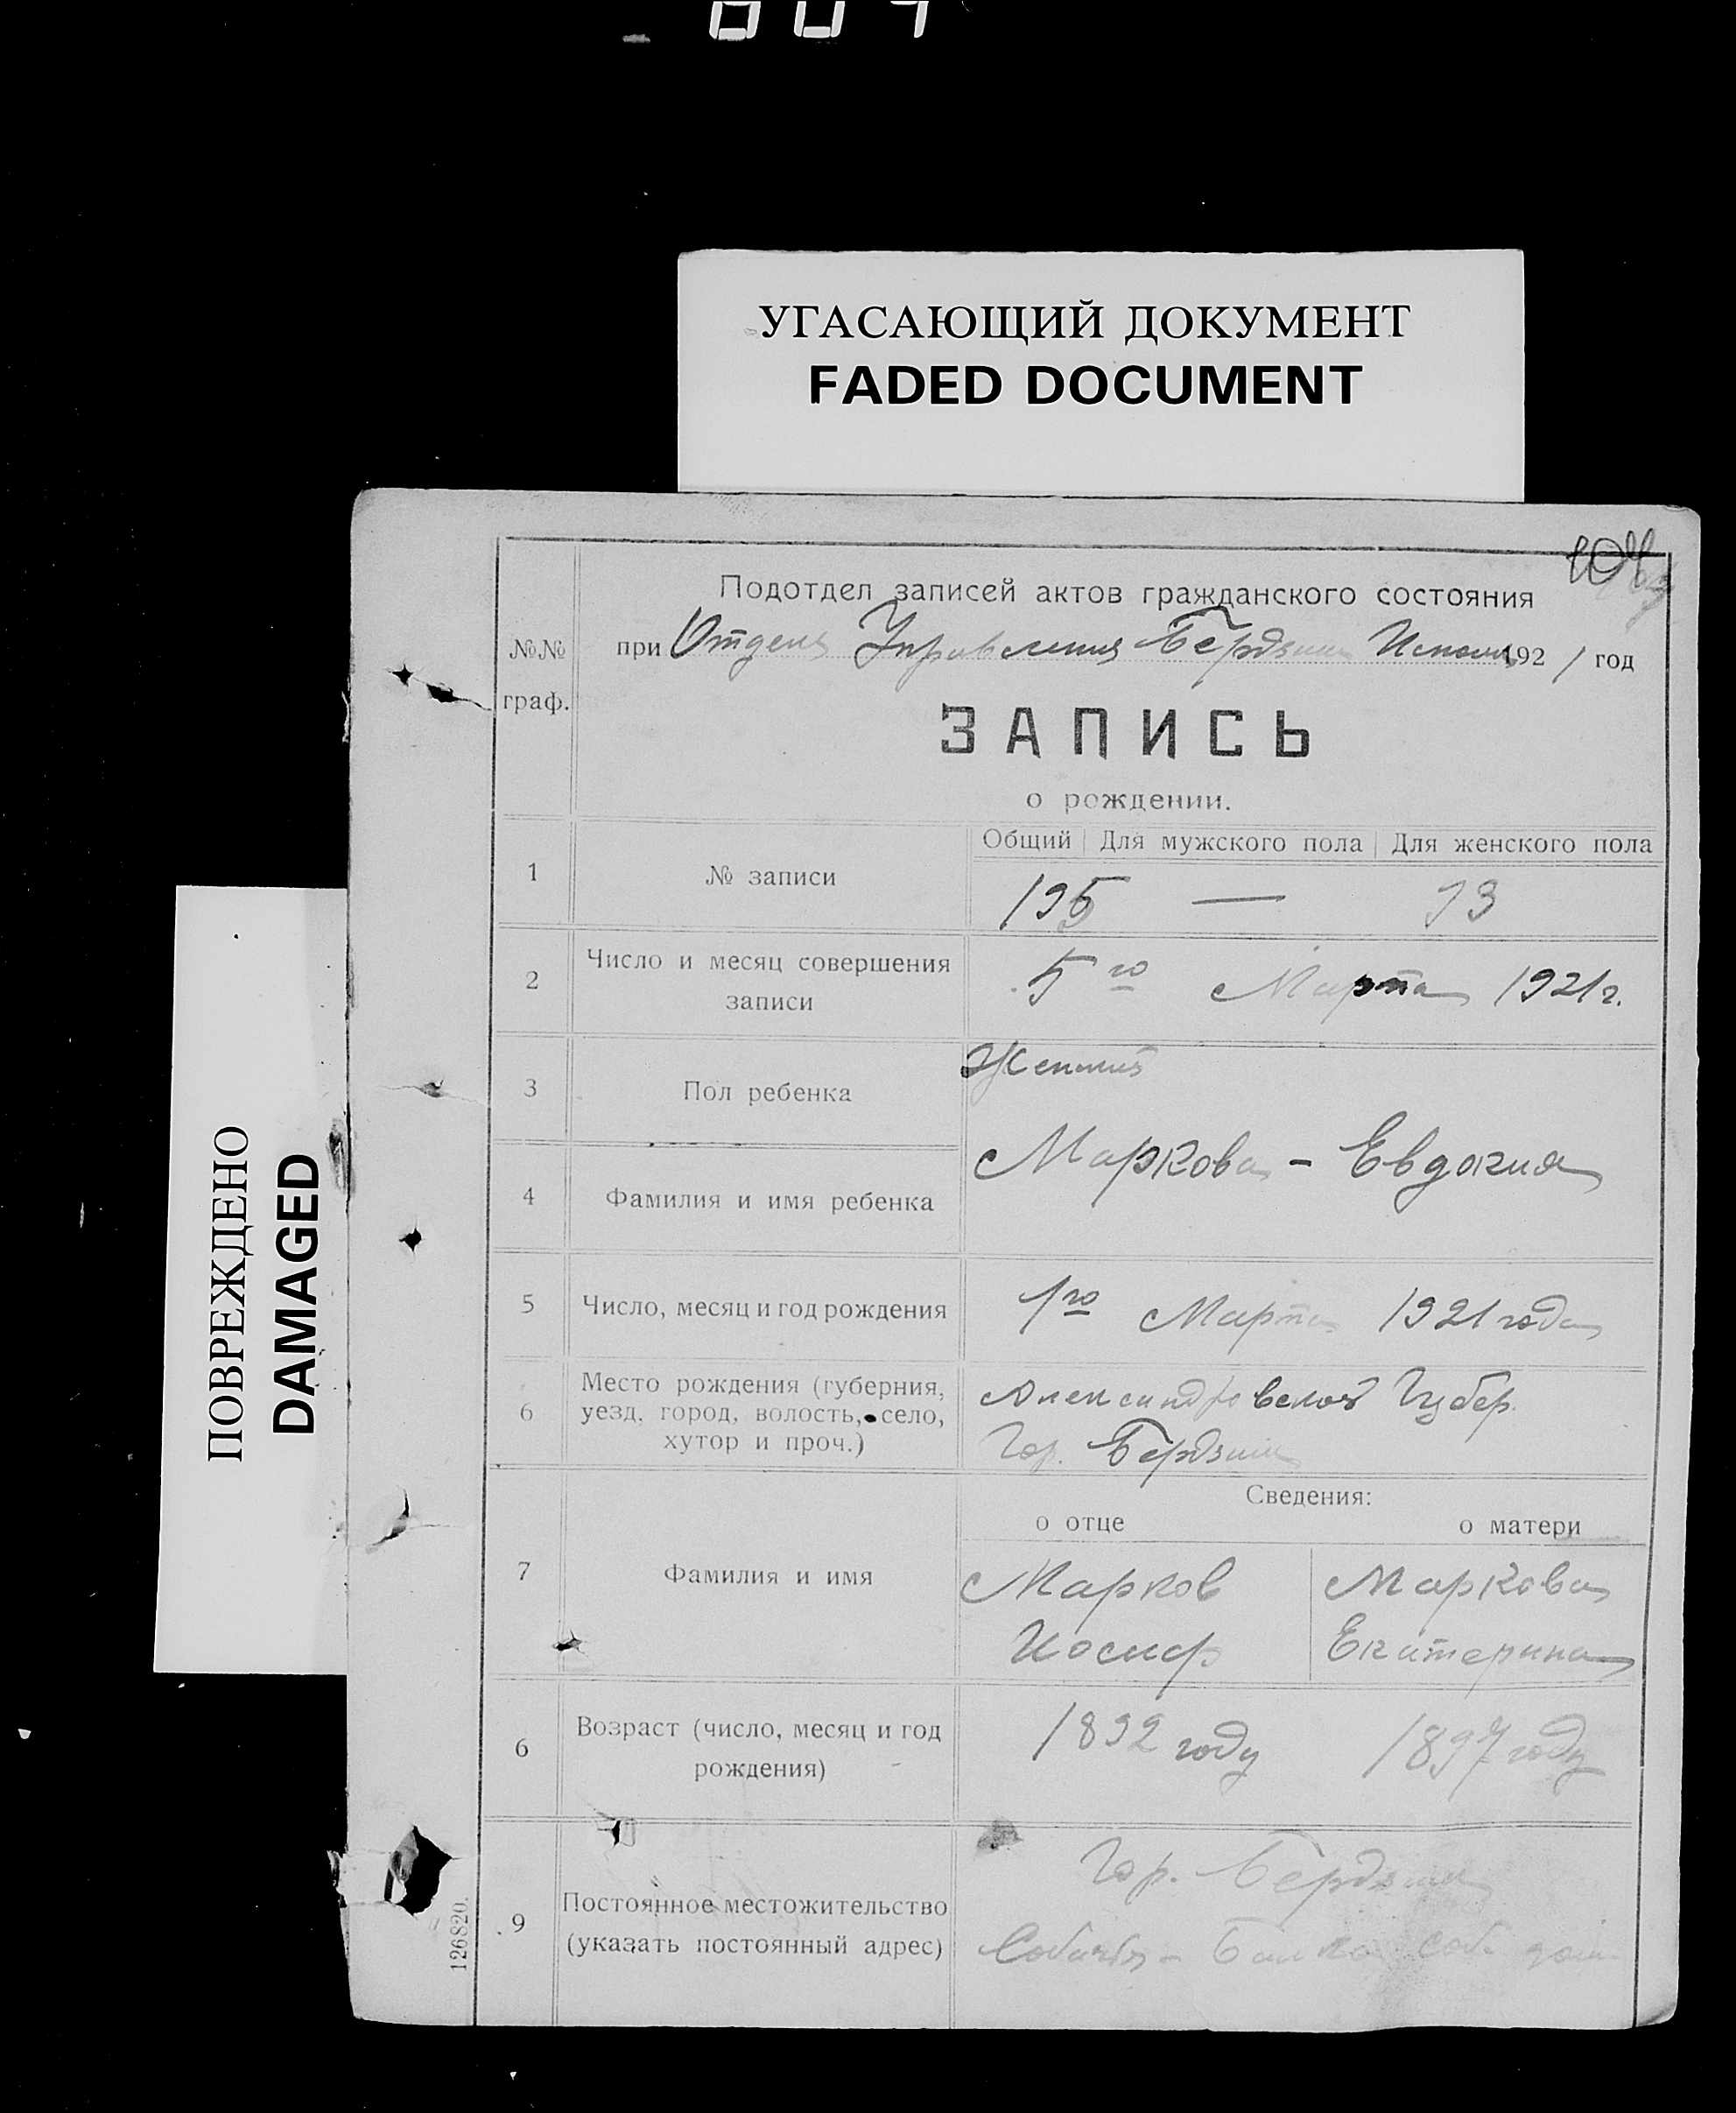 УГАСАЮЩИЙ ДОКУМЕНТ
FADED DOCUMENT
ПОВРЕЖДЕНО
DAMAGED
Подотдел записей актов гражданского состояния
№№ граф.
при Отделе Управления Бердян Исполк 1921 год
ЗАПИСЬ
о рождении.
Общий Для мужского пола Для женского пола
1 № записи 195 — 93
2 Число и месяц совершения
записи
5го Марта 1921 г.
3 Пол ребенка
Женский
4 Фамилия и имя ребенка
Маркова - Евдокия
5 Число, месяц и год рождения 1го Марта 1921 года
6 Место рождения (губерния,
уезд, город, волость, село,
хутор и проч.)
Александровской Губер.
Гор. Бердянск
Сведения:
о отце о матери
7 Фамилия и имя
Марков Маркова
Иосиф Екатерина
6 Возраст (число, месяц и год
рождения)
1892 году 1897 году
9 Постоянное местожительство
(указать постоянный адрес)
Гор. Бердянск
Собачья - Балка соб. дом
126820.